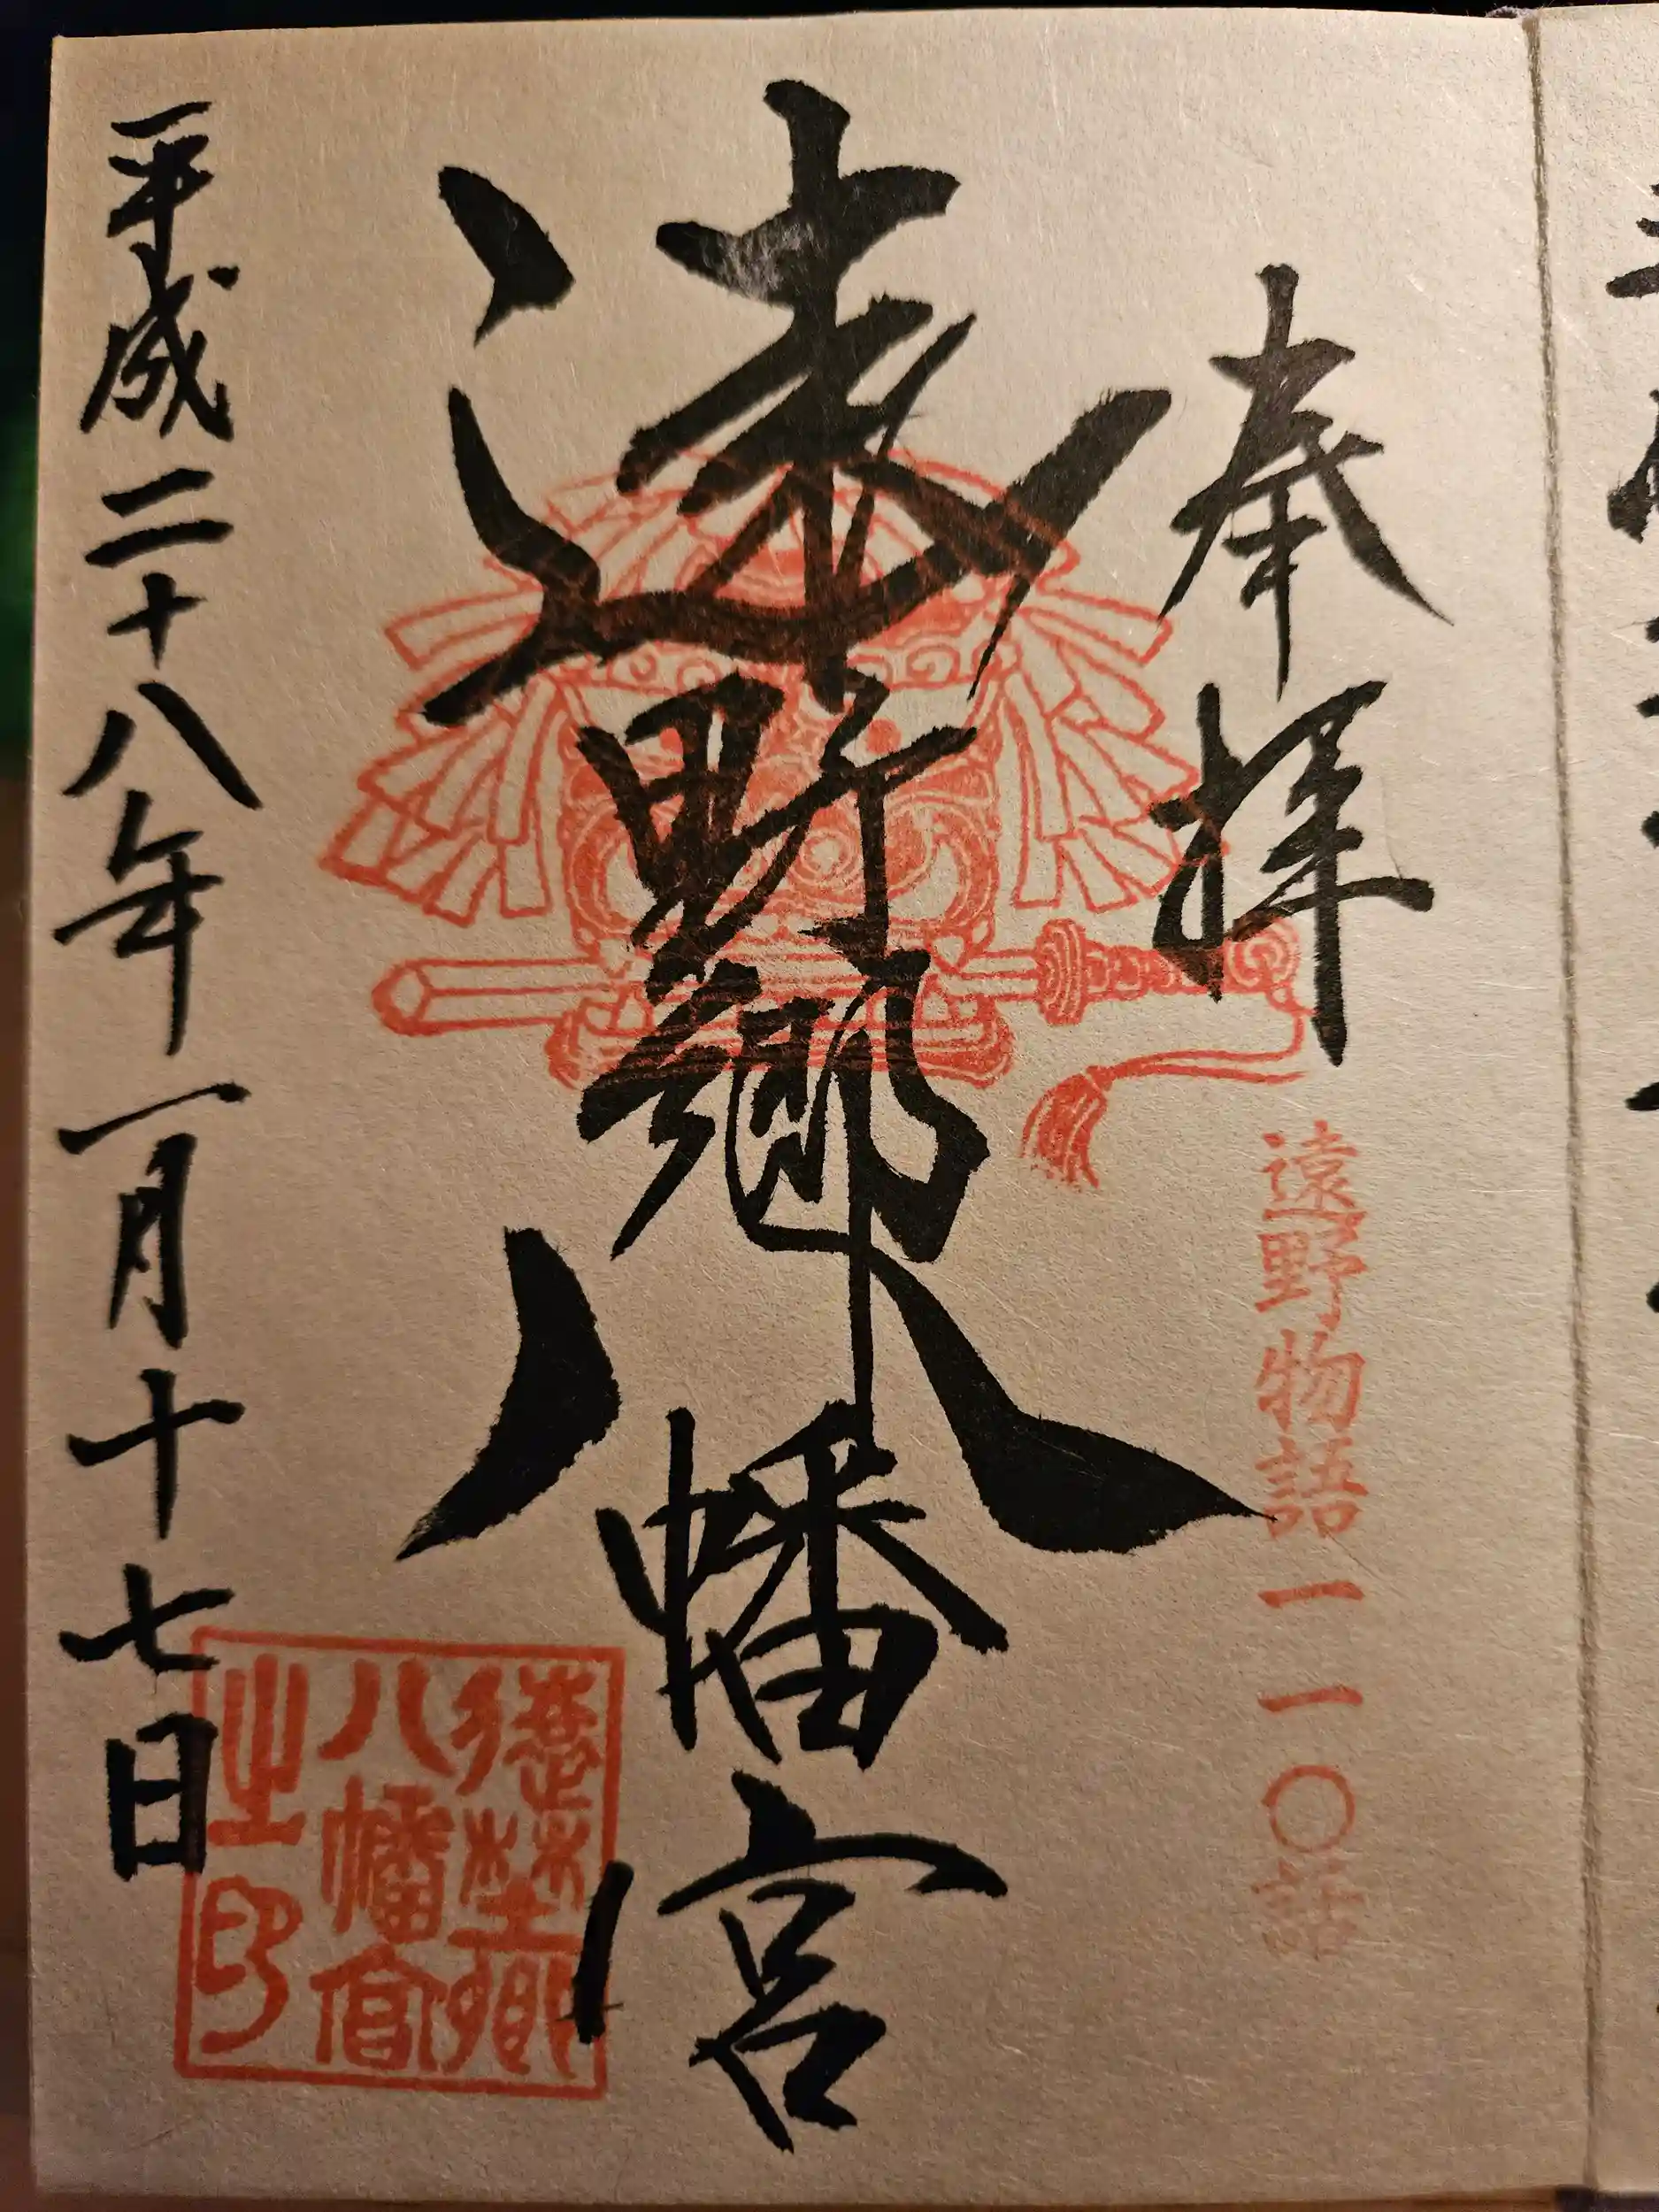 奉拝
遠野物語一一〇話
遠野郷八幡宮
平成二十八年一月十七日
遠野郷
八幡宮
之印